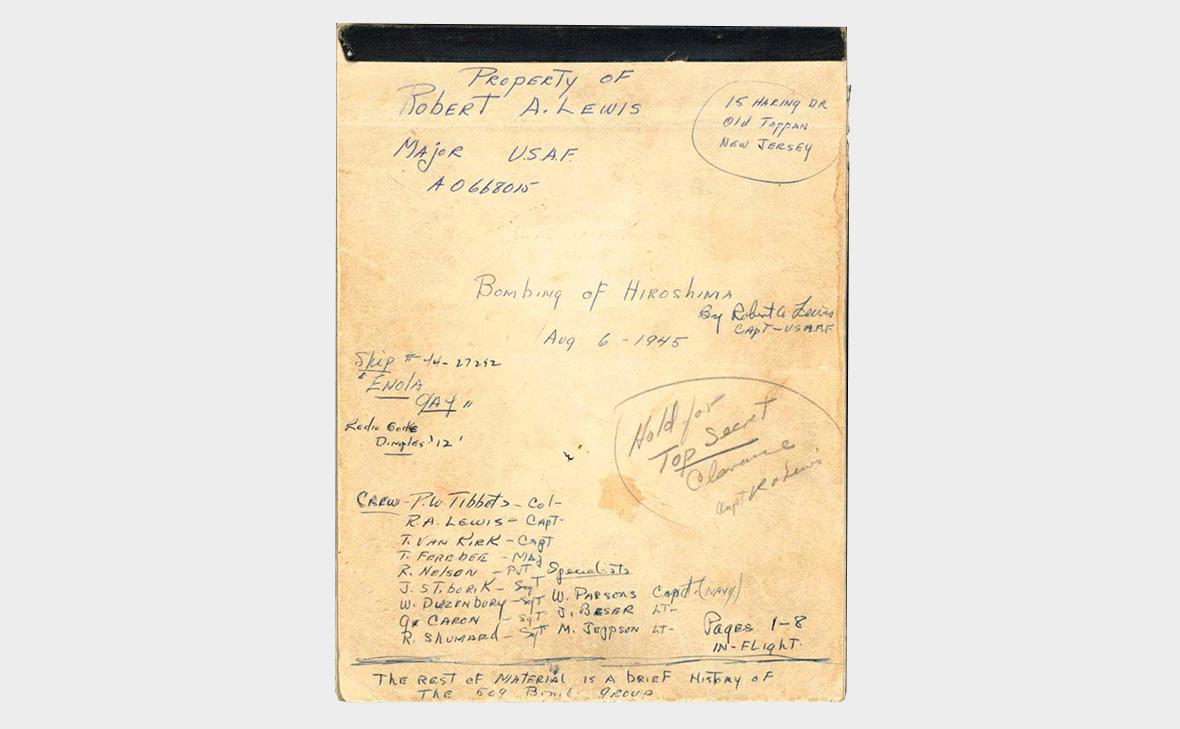 Property of
Robert A. Lewis
15 Haring Dr
Old Tappan
New Jersey
Major U.S.A.F.
AO668015
Bombing of Hiroshima
By Robert A. Lewis
Capt - USAAF
Aug 6 - 1945
Ship # 44-27292
"Enola
Gay"
Radio Code
Dimples '12'
Hold for
Top Secret
Clearance
Capt R
Crew - P.W. Tibbets - Col -
R.A. Lewis - Capt -
T. Van Kirk - Capt
T. Ferebee - Maj
R. Nelson - Pvt
J. Stiborik - Sgt
W. Duzenbury - Sgt
G. Caron - Sgt
R. Shumard - Sgt
Specialists
W. Parsons Capt. (Navy)
J. Beser Lt -
M. Jeppson Lt -
Pages 1-8
In-Flight.
The rest of material is a brief history of
the 509 Bomb group